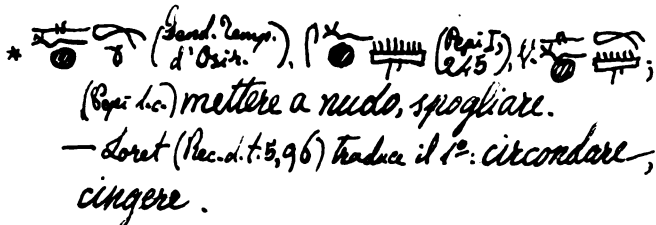 * (Dend. Temp. d'Osir.), (Pepi I, 245), v. ;
(Pepi l.c.) mettere a nudo, spogliare.
— Loret (Rec. d. t. 5, 96) traduce il 1º: circondare,
cingere.